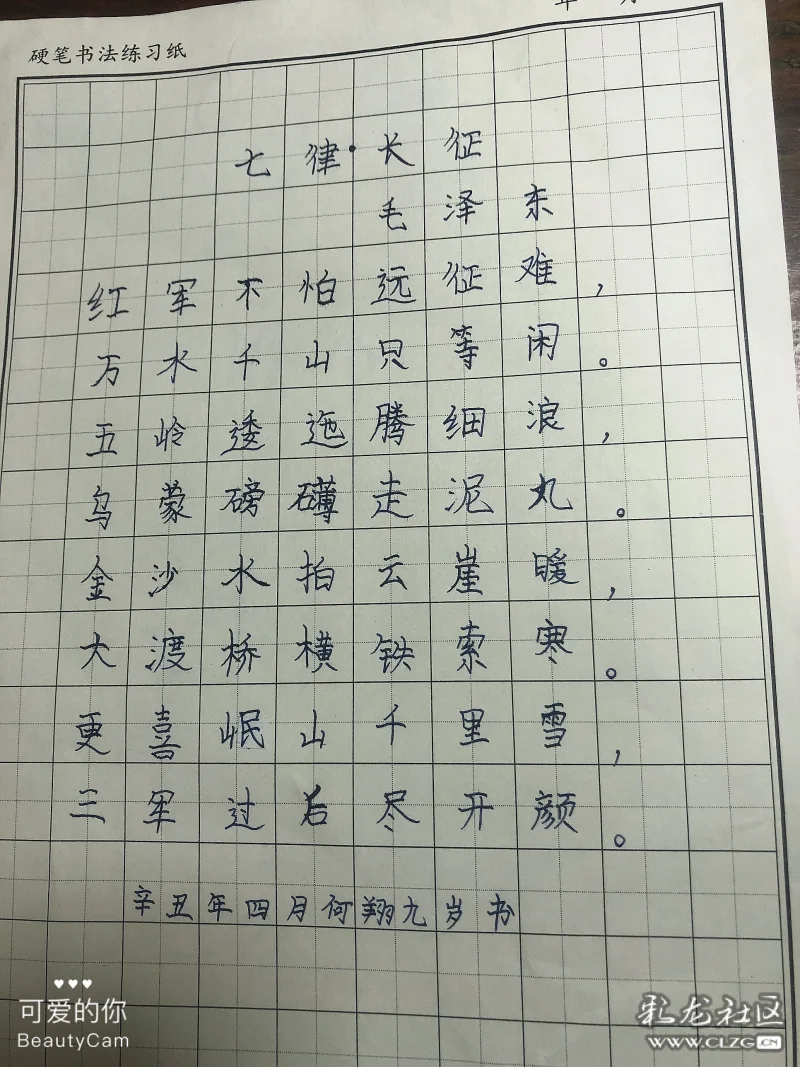 年 月
硬笔书法练习纸
七律·长征
毛泽东
红军不怕远征难，
万水千山只等闲。
五岭逶迤腾细浪，
乌蒙磅礴走泥丸。
金沙水拍云崖暖，
大渡桥横铁索寒。
更喜岷山千里雪，
三军过后尽开颜。
辛丑年四月何翔九岁书
可爱的你
BeautyCam
彩龙社区
WWW.CLZG.CN